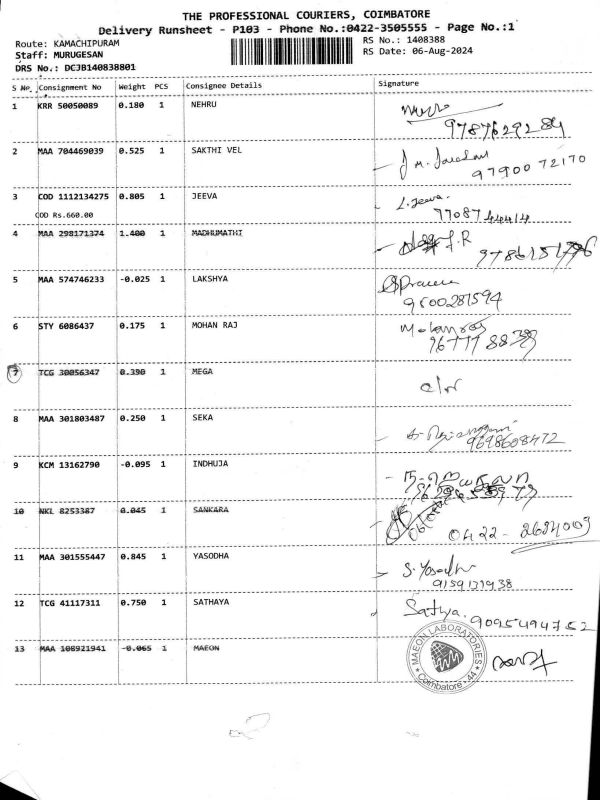 THE PROFESSIONAL COURIERS, COIMBATORE
Delivery Runsheet - P103 - Phone No.:0422-3505555 - Page No.:1
Route: KAMACHIPURAM
RS No.: 1408388
Staff: MURUGESAN
RS Date: 06-Aug-2024
DRS No.: DCJB140838801
S No. Consignment No Weight PCS Consignee Details Signature
1 KRR 50050089 0.180 1 NEHRU
9787629284
2 MAA 704469039 0.525 1 SAKTHI VEL
97900 72170
3 COD 1112134275 0.805 1 JEEVA L. Jeeva.
COD Rs.660.00
77087 44414
4 MAA 298171374 1.400 1 MADHUMATHI
5 MAA 574746233 -0.025 1 LAKSHYA
9500281594
6 STY 6086437 0.175 1 MOHAN RAJ Mohanraj
7 TCG 30056347 0.390 1 MEGA
8 MAA 301803487 0.250 1 SEKA
9698608472
9 KCM 13162790 -0.095 1 INDHUJA
10 NKL 8253387 0.045 1 SANKARA
0422-
11 MAA 301555447 0.845 1 YASODHA S. Yosodha
12 TCG 41117311 0.750 1 SATHAYA Sathya. 9095494752
13 MAA 108921941 -0.065 1 MAEON
MAEON LABORATORIES
Coimbatore - 44